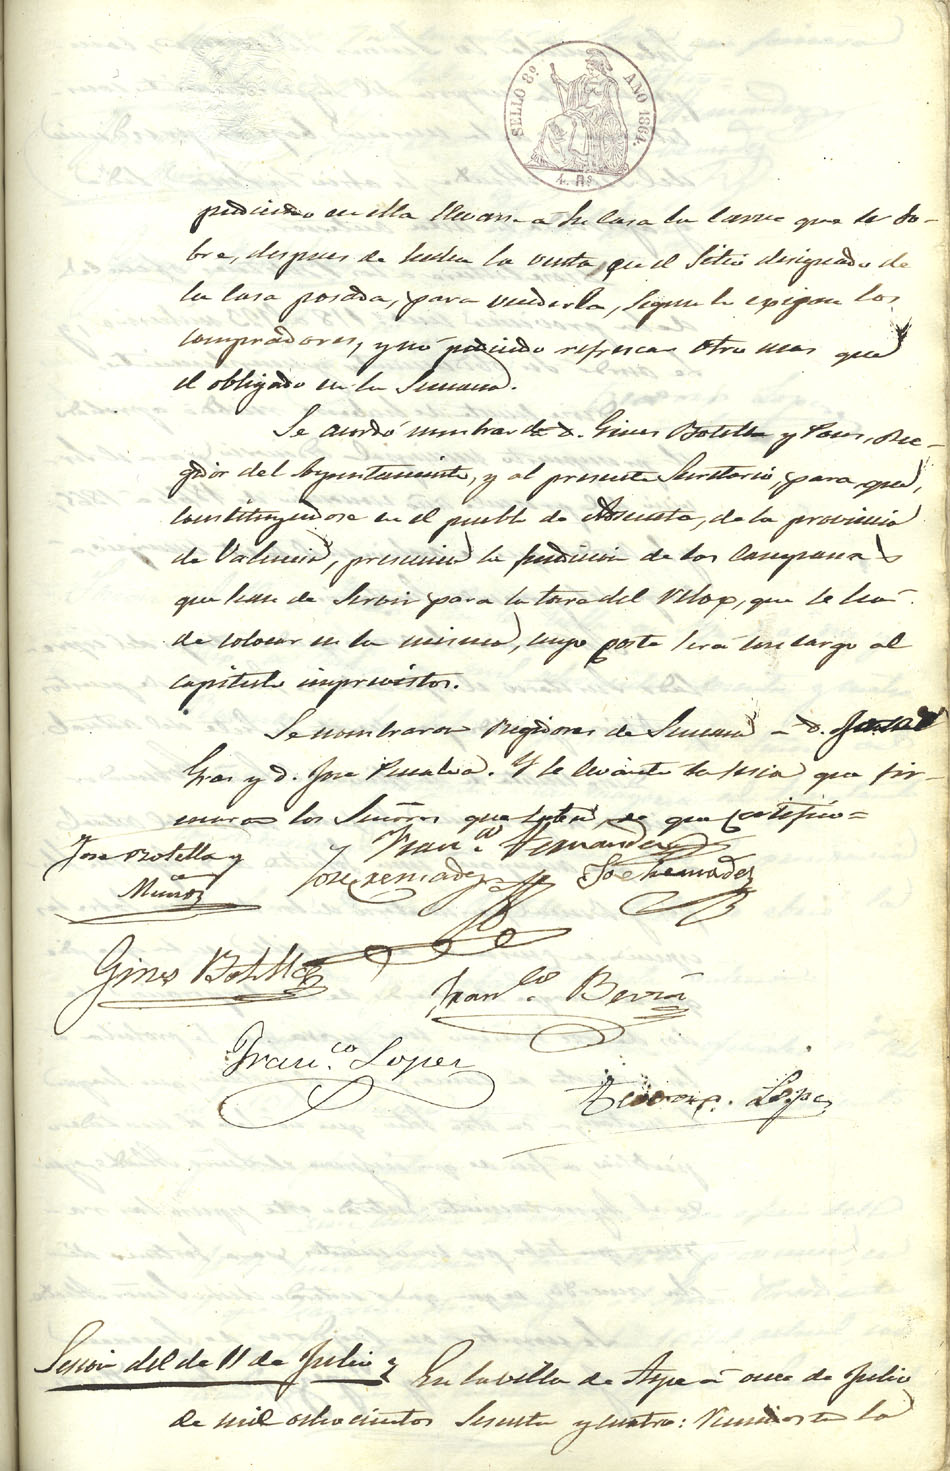 SELLO 8º AÑO 1864.
4. Rs
pudiendo en ella llevarse a su casa la carne que le so-
bre, despues de hecha la venta, en el Sitio designado de
la casa posada, para venderla, segun le exijan los
compradores, y no pudiendo refrescar otro mas que
el obligado en la Semana.
Se acordó nombrar á D. Gines Botella y Pons, Re-
gidor del Ayuntamiento, y al presente Secretario, para que,
constituyendose en el pueblo de de la provincia
de Valencia, presencien la fundicion de las campanas
que han de servir para la torre del Relox, que se ha
de colocar en la misma, cuyo gasto será con cargo al
capitulo imprevistos.
Se nombraron Regidores de Semana á D.
Gras y D. Jose Penalva. Y se levantó la sesion que fir-
maron los Señores que saben, de que certifico=
Jose Botella y
Muñoz
Franco. Hernandez
Jose Hernandez
Jose Hernandez
Gines Botella
Franco. Berná
Franco. Lopez
Lopez
Sesion del de 11 de Julio
En la villa de Aspe á once de Julio
de mil ochocientos sesenta y cuatro: Reunidos en la